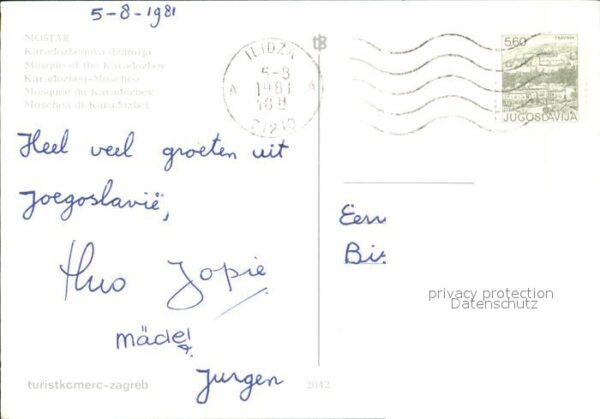 5-8-1981
MOSTAR
Karadozbegova džamija
Mosque of the Karadozbey
Karadozbeg-Moschee
Mosquée du Karadozbey
Moschea di Karadozbei
ILIDŽA
5-8
1981
18
A A
71210
TRAVNIK
5.60
JUGOSLAVIJA
Heel veel groeten uit
Joegoslavië,
Jopie
Mädel
Jurgen
Eerw
Bis
privacy protection
Datenschutz
turistkomerc-zagreb
2042